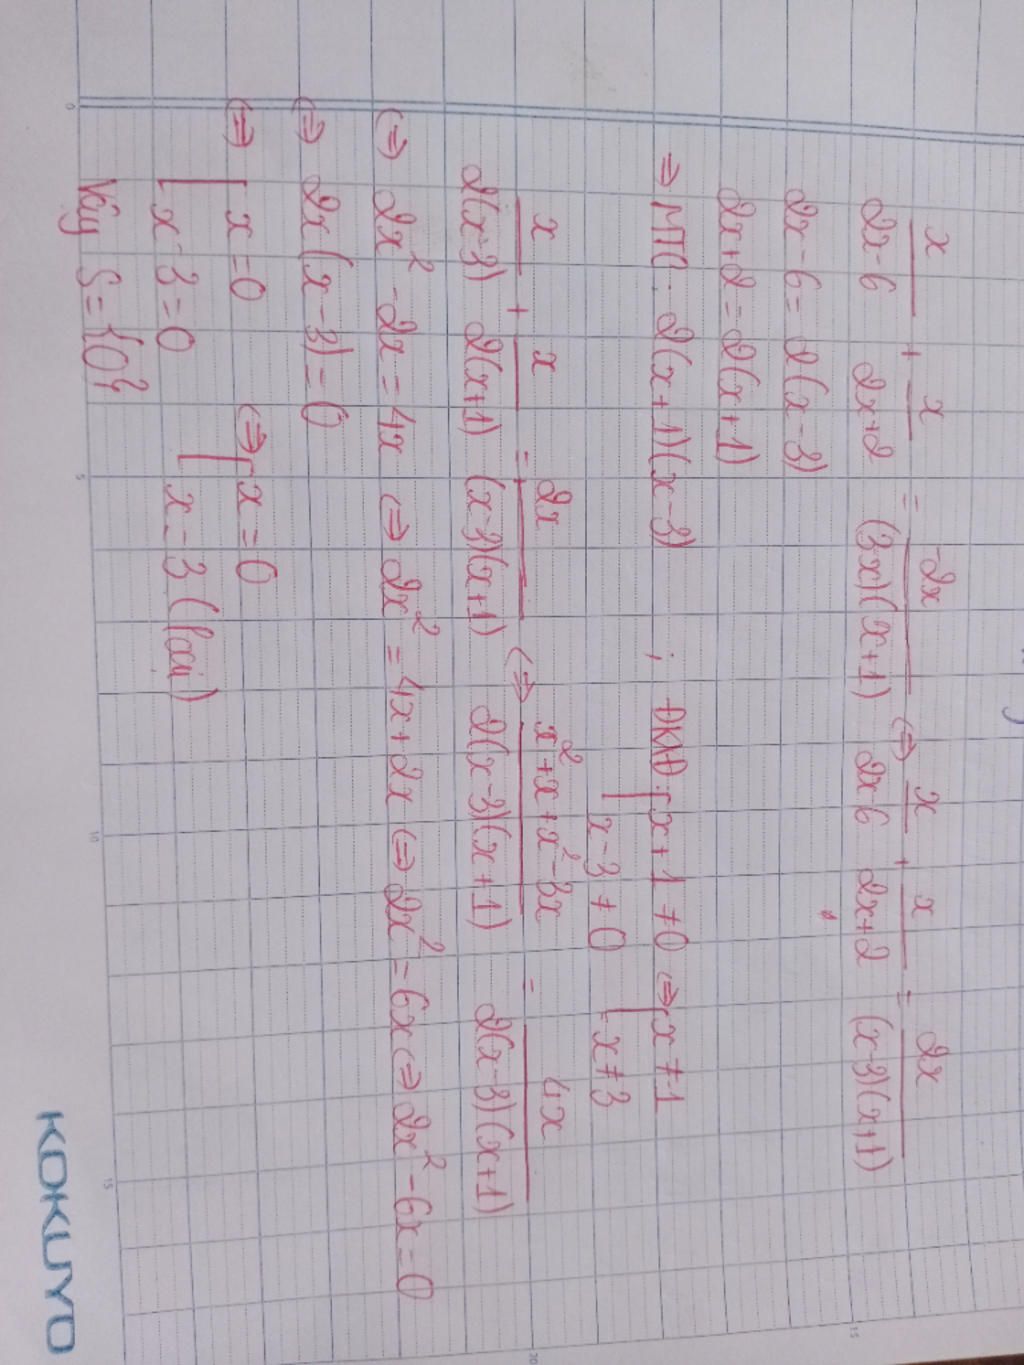 x/(2x-6) + x/(2x+2) = -2x/((3x)(x+1)) (=) x/(2x-6) + x/(2x+2) = 2x/((x-3)(x+1))
2x-6 = 2(x-3)
2x+2 = 2(x+1)
⇒ MTC: 2(x+1)(x-3) ; ĐKXĐ: [x+1 ≠ 0 (⇒) [x ≠ -1
[x-3 ≠ 0 [x ≠ 3
x/(2(x-3)) + x/(2(x+1)) = 2x/((x-3)(x+1)) (⇒) (x²+x+x²-3x)/(2(x-3)(x+1)) = 4x/(2(x-3)(x+1))
(⇒) 2x² - 2x = 4x (⇒) 2x² = 4x + 2x (⇒) 2x² = 6x (⇒) 2x² - 6x = 0
(⇒) 2x(x-3) = 0
(⇒) [x = 0 (⇒) [x = 0
[x - 3 = 0 [x = 3 (loại)
Vậy S = {0}
KOKUYO
0
5
10
15
15
20